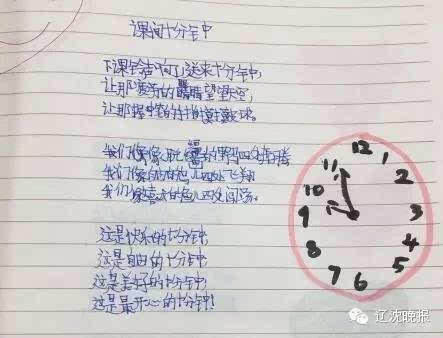 课间十分钟
下课铃声响了送来十分钟,
让那疲劳的眼睛望望天空,
让那握 的手 球。
我们像 脱缰的野马四处奔腾
我们像 的鸟儿四处飞翔
我们像 的鸟儿四处
这是快乐的十分钟,
这是自由的十分钟,
这是美好的十分钟,
这是最开心的十分钟!
12
1
2
3
4
5
6
7
8
9
10
11
辽沈晚报